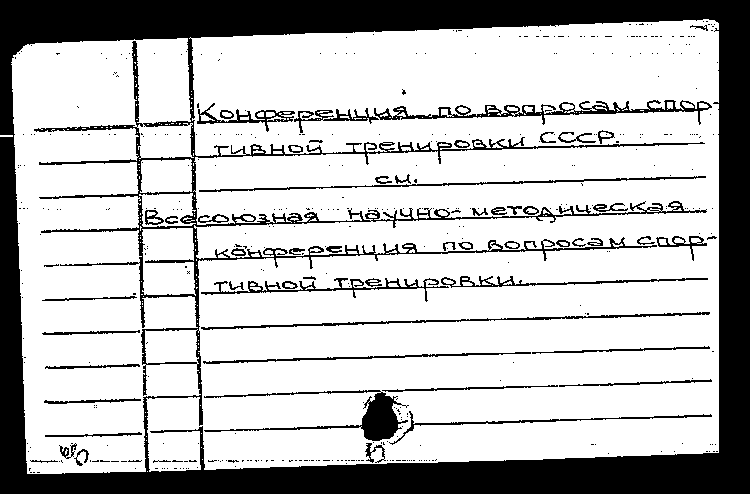 Конференция по вопросам спор-
тивной тренировки СССР.
см.
Всесоюзная научно-методическая
конференция по вопросам спор-
тивной тренировки.